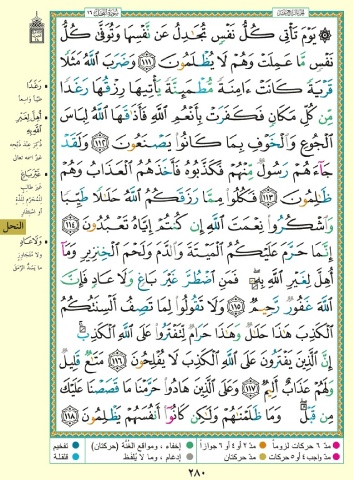 سُورَةُ النَّحْلِ ١٦
۞ يَوْمَ تَأْتِي كُلُّ نَفْسٍ تُجَادِلُ عَن نَّفْسِهَا وَتُوَفَّىٰ كُلُّ
نَفْسٍ مَّا عَمِلَتْ وَهُمْ لَا يُظْلَمُونَ ١١١ وَضَرَبَ اللَّهُ مَثَلًا
قَرْيَةً كَانَتْ ءَامِنَةً مُّطْمَئِنَّةً يَأْتِيهَا رِزْقُهَا رَغَدًا
مِّن كُلِّ مَكَانٍ فَكَفَرَتْ بِأَنْعُمِ اللَّهِ فَأَذَاقَهَا اللَّهُ لِبَاسَ
الْجُوعِ وَالْخَوْفِ بِمَا كَانُوا يَصْنَعُونَ ١١٢ وَلَقَدْ
جَاءَهُمْ رَسُولٌ مِّنْهُمْ فَكَذَّبُوهُ فَأَخَذَهُمُ الْعَذَابُ وَهُمْ
ظَالِمُونَ ١١٣ فَكُلُوا مِمَّا رَزَقَكُمُ اللَّهُ حَلَالًا طَيِّبًا
وَاشْكُرُوا نِعْمَتَ اللَّهِ إِن كُنتُمْ إِيَّاهُ تَعْبُدُونَ ١١٤
إِنَّمَا حَرَّمَ عَلَيْكُمُ الْمَيْتَةَ وَالدَّمَ وَلَحْمَ الْخِنزِيرِ وَمَا
أُهِلَّ لِغَيْرِ اللَّهِ بِهِ فَمَنِ اضْطُرَّ غَيْرَ بَاغٍ وَلَا عَادٍ فَإِنَّ
اللَّهَ غَفُورٌ رَّحِيمٌ ١١٥ وَلَا تَقُولُوا لِمَا تَصِفُ أَلْسِنَتُكُمُ
الْكَذِبَ هَٰذَا حَلَالٌ وَهَٰذَا حَرَامٌ لِّتَفْتَرُوا عَلَى اللَّهِ الْكَذِبَ
إِنَّ الَّذِينَ يَفْتَرُونَ عَلَى اللَّهِ الْكَذِبَ لَا يُفْلِحُونَ ١١٦ مَتَاعٌ قَلِيلٌ
وَلَهُمْ عَذَابٌ أَلِيمٌ ١١٧ وَعَلَى الَّذِينَ هَادُوا حَرَّمْنَا مَا قَصَصْنَا عَلَيْكَ
مِن قَبْلُ وَمَا ظَلَمْنَاهُمْ وَلَٰكِن كَانُوا أَنفُسَهُمْ يَظْلِمُونَ ١١٨
رَغَدًا
طيّباً واسعاً
أُهِلَّ لِغَيْرِ
اللَّهِ بِهِ
ذُكِرَ عند ذبحه
غيرُ اسمه تعالى
غَيْرَ بَاغٍ
غير طالب
للمحرّم للذّة
أو استئثار
النحل
وَلَا عَادٍ
ولا متجاوز
ما يسدّ الرّمق
مدّ ٦ حركات لزوماً
مدّ ٢ أو ٤ أو ٦ جوازاً
إخفاء، ومواقع الغُنَّة (حركتان)
تفخيم
مدّ واجب ٤ أو ٥ حركات
مدّ حركتان
إدغام، وما لا يُلفَظ
قلقلة
٢٨٠